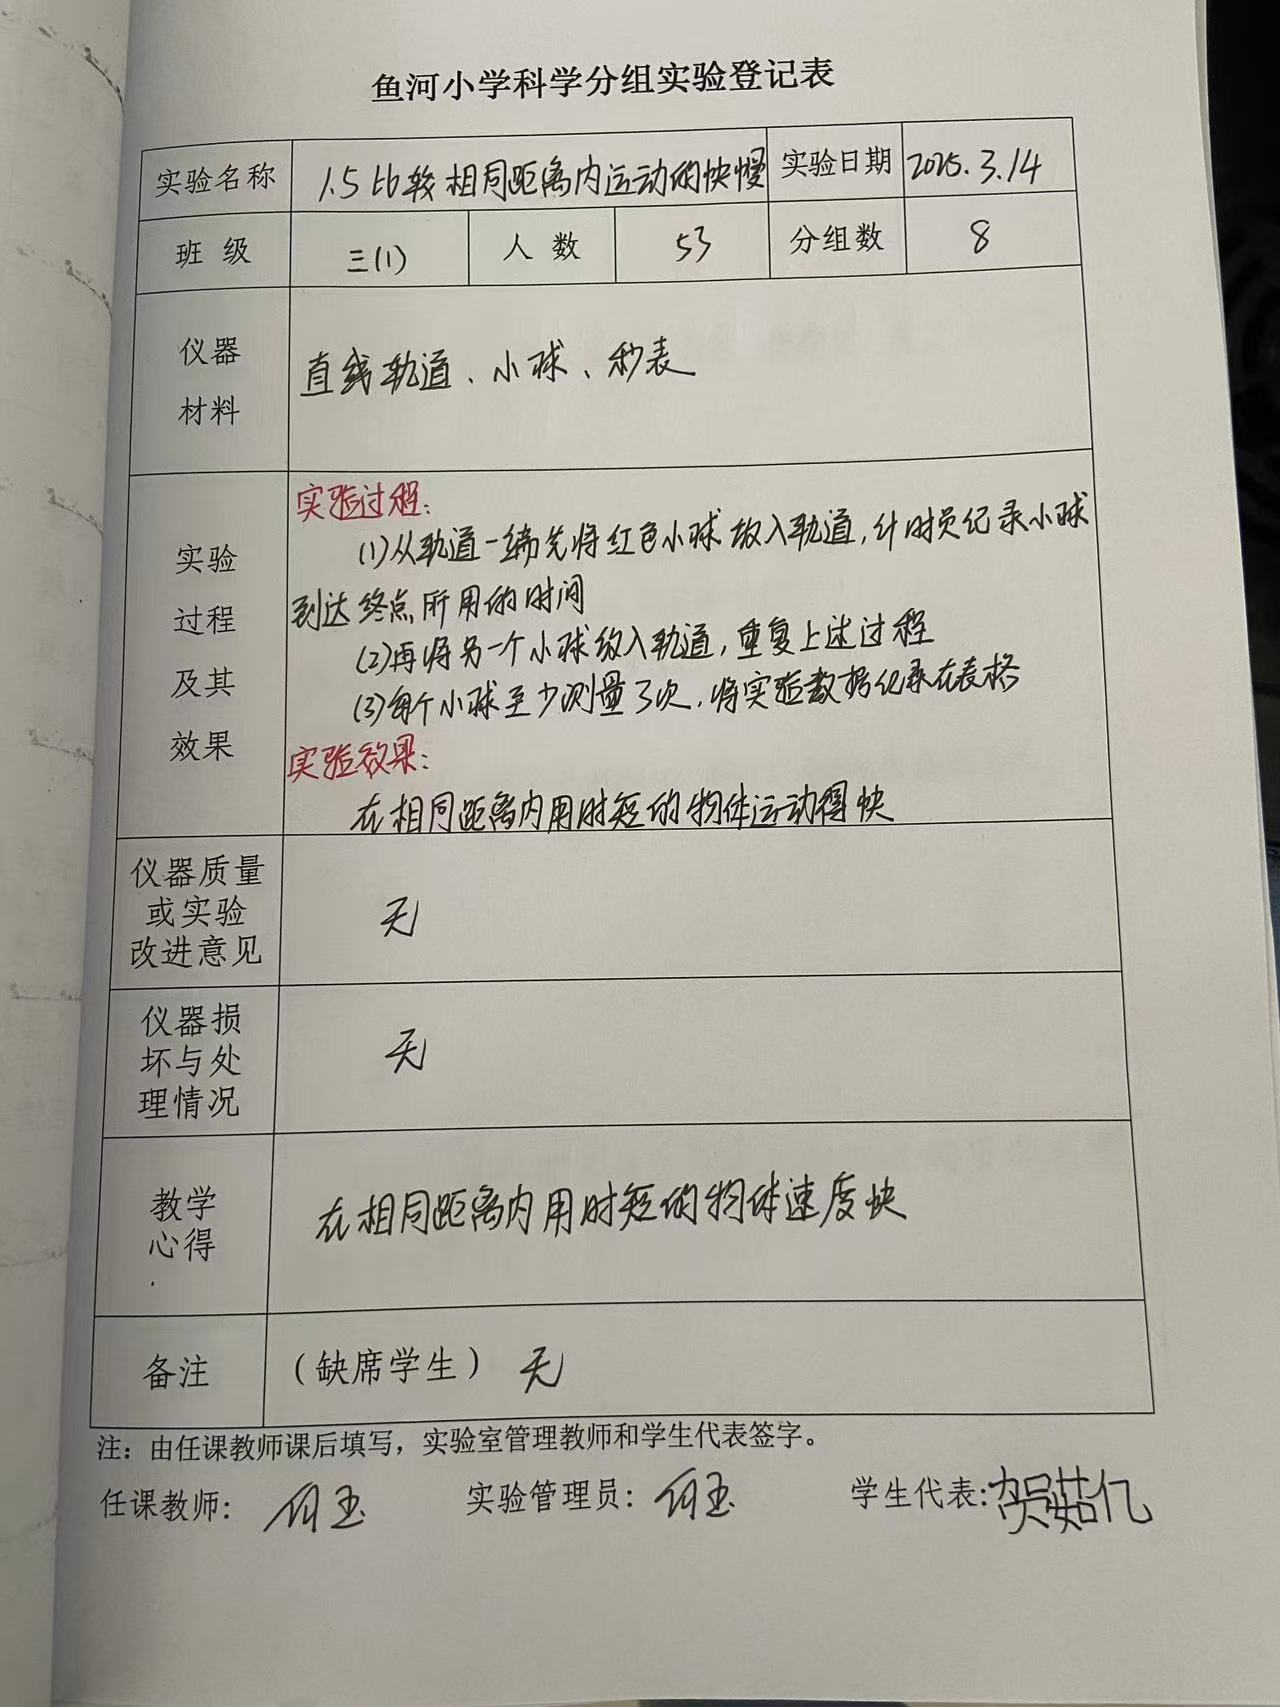 鱼河小学科学分组实验登记表
实验名称 1.5比较相同距离内运动的快慢 实验日期 2025.3.14
班 级 三(1) 人 数 53 分组数 8
仪器
材料
直线轨道、小球、秒表
实验
过程
及其
效果
实验过程:
(1)从轨道一端先将红色小球放入轨道,计时员记录小球
到达终点所用的时间
(2)再将另一个小球放入轨道,重复上述过程
(3)每个小球至少测量3次,将实验数据记录在表格
实验效果:
在相同距离内用时短的物体运动得快
仪器质量
或实验
改进意见
无
仪器损
坏与处
理情况
无
教学
心得
在相同距离内用时短的物体速度快
备注 (缺席学生) 无
注:由任课教师课后填写,实验室管理教师和学生代表签字。
任课教师: 何玉 实验管理员: 何玉 学生代表:贺茹亿